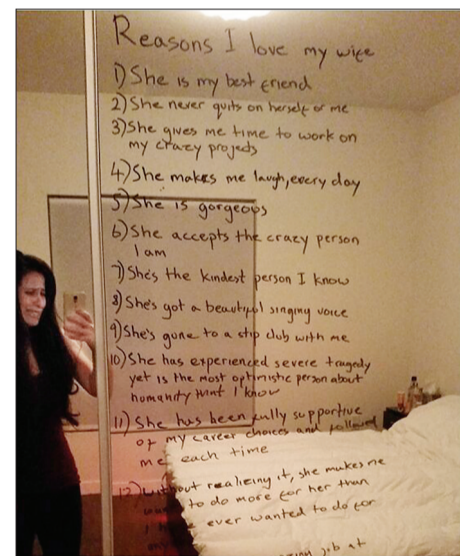 Reasons I love my wife
1) She is my best friend
2) She never quits on herself or me
3) She gives me time to work on
my crazy projects
4) She makes me laugh, every day
5) She is gorgeous
6) She accepts the crazy person
I am
7) She's the kindest person I know
8) She's got a beautiful singing voice
9) She's gone to a strip club with me
10) She has experienced severe tragedy
yet is the most optimistic person about
humanity I know
11) She has been fully supportive
of my career choices and followed
me each time
12) Without realizing it, she makes me
to do more for her than
I ever wanted to do for
job at